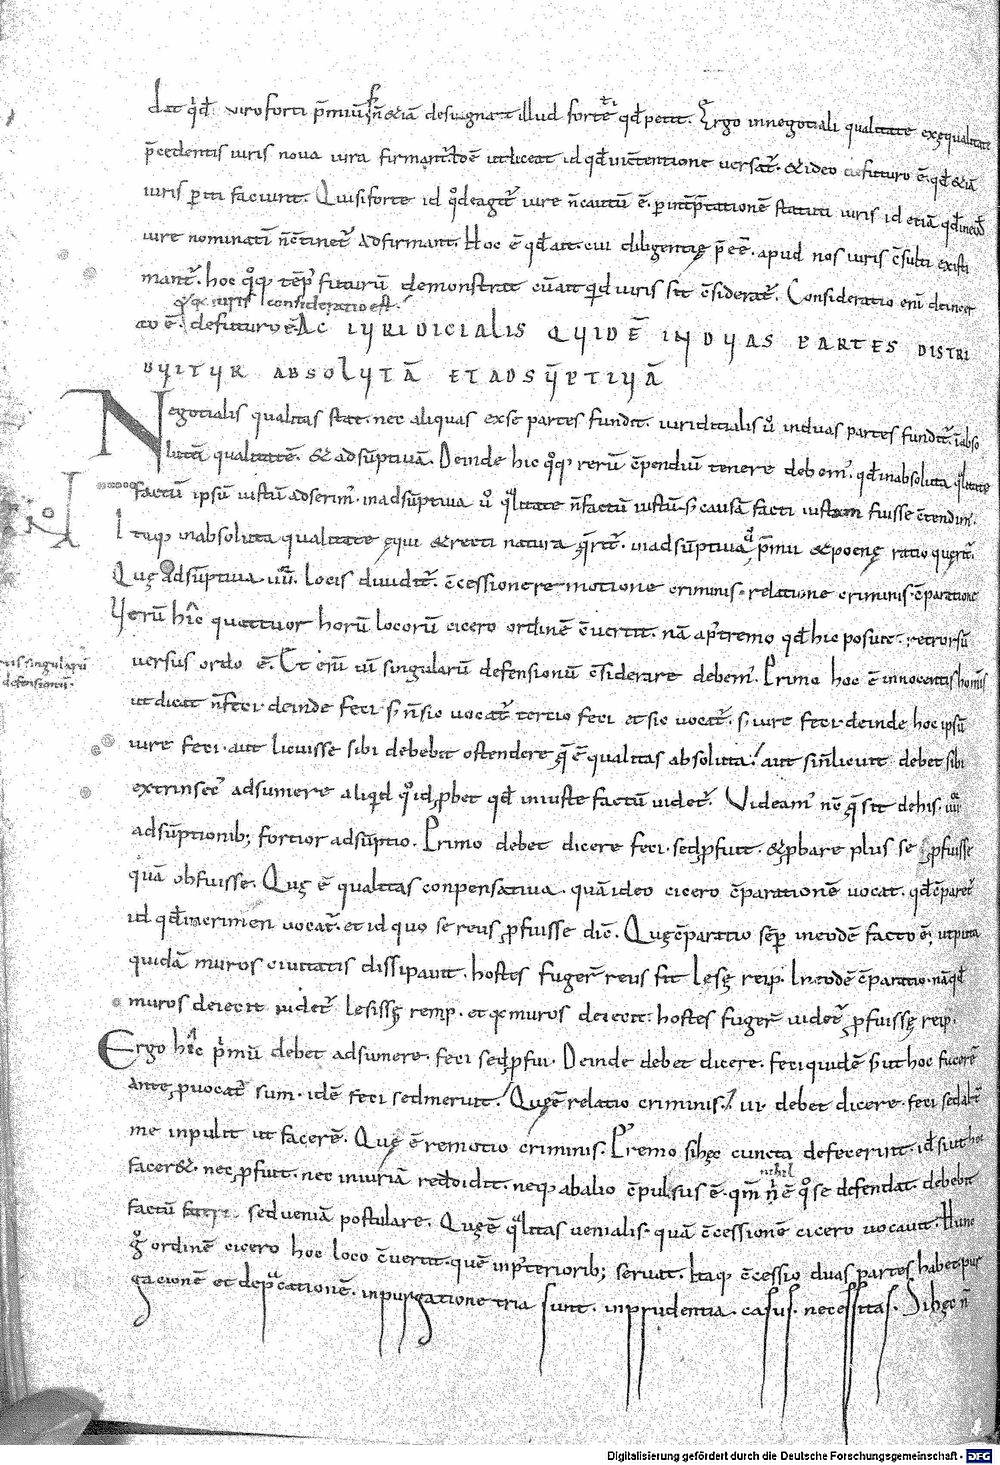 dat qđ viro forti p̄miū n̄ & iā designat illud forte qđ petit. Ergo in negotiali qualitate ex equalitate
p̄cedentis iuris nova iura firmant. ut liceat id qđ in c̄tentione versat̄. & ideo de futuro ē. qđ & iā
iuris periti faciunt. Qui si forte id qđ agit̄ iure n̄ cautū ē. p int̄p̄tationē statuti iuris id etiā qđ in eod̄
iure nominati n̄ c̄tinet̄ adfirmant. Hoc ē qđ ait. cui diligentię p̄eē. apud nos iuris c̄sulti existi
mant̄. hoc qq; tēp̄ futurū demonstrat cū ait quid iuris sit c̄siderat̄. Consideratio enī deincep
q̨ iuris consideratio est.
to ē. de futuro ē. AC IURIDICIALIS QUIDĒ IN DUAS PARTES DISTRI
BUITUR ABSOLUTĀ ET ADSŪPTIUĀ
Negotialis qualitas stat. nec aliquas ex se partes fundit. iuridicialis ū in duas partes fundit̄. īabso
lutā qualitatē. & adsūptivā. Deinde hic qq; rerū c̄pendiū tenere debem̄. qđ in absoluta qlitate
factū ipsū iustū adserim̄. in adsūptiva ū qlitate n̄ factū iustū. s; causā facti iustam fuisse c̄tendim̄.
Itaq; in absoluta qualitate ęqui & recti natura q̄rit̄. in adsūptiva p̄mii & poenę ratio quęrit̄.
Quę adsūptiva. iiii. locis dividit̄. c̄cessione remotione criminis. relatione criminis. c̄paratione
Verū hic quattuor horū locorū cicero ordinē c̄vertit. nā a postremo qđ hic posuit. retrorsū
versus ordo ē. Et enī tū singularū defensionū c̄siderare debem̄. Primo hoc ē innocentis hominis
vis singularū
defensionū.
ut dicat n̄ feci. deinde feci s; n̄ sic vocat̄ tertio feci et sic vocat̄. s; iure feci. deinde hoc ipsū
iure feci. aut licuisse sibi debebit ostendere q̄ ē qualitas absoluta. aut si n̄ licuit debet sibi
extrinsec̄ adsumere aliquid qo id p̱bet qđ iniuste factū videt̄. Videam̄ nc̄ q̄ sit de his. iiii
adsūptionib; fortior adsūptio. Primo debet dicere feci. sed p̱fuit. & p̱bare plus se p̱fuisse
quā obfuisse. Quę ē qualitas conpensativa. quā ideo cicero c̄parationē vocat. qđ c̄paret̄
id qđ in crimen vocat̄. et id quo se reus p̱fuisse dic̄. Quę c̄paratio sēp in eodē facto ē; utputa
quidā muros civitatis dissipavit. hostes fuger̄ reus fit lesę reip. In eodē c̄paratio. nā qđ
muros deiecit videt̄ lesisse remp. et qđ muros deiecit. hostes fuger̄ videt̄ p̱fuisse reip.
Ergo hic p̄mū debet adsumere. feci sed p̱fui. Deinde debet dicere. feci quidē s; ut hoc facerē
ante p̱vocat̄ sum. idē feci sed meruit. Quę ē relatio criminis. debet dicere. feci sed alt̄
me inpulit ut facerē. Quę ē remotio criminis. P̄remo si hęc cuncta defecerint. id ē si ut hoc
nihil
facer&. nec p̱fuit. nec iniuriā reddidit. neq; ab alio c̄pulsus ē. qm̄ ē qo se defendat. debebit
factū sed veniā postulare. Quę ē qlitas venialis. quā c̄cessionē cicero vocavit. Hunc
ḡ ordinē cicero hoc loco c̄vertit. quē in p̄teriorib; servat. Itaq; c̄cessio duas partes habet. pur
gationē et dep̄cationē. in purgatione tria sunt. inprudentia. casus. necessitas.
Digitalisierung gefördert durch die Deutsche Forschungsgemeinschaft - DFG